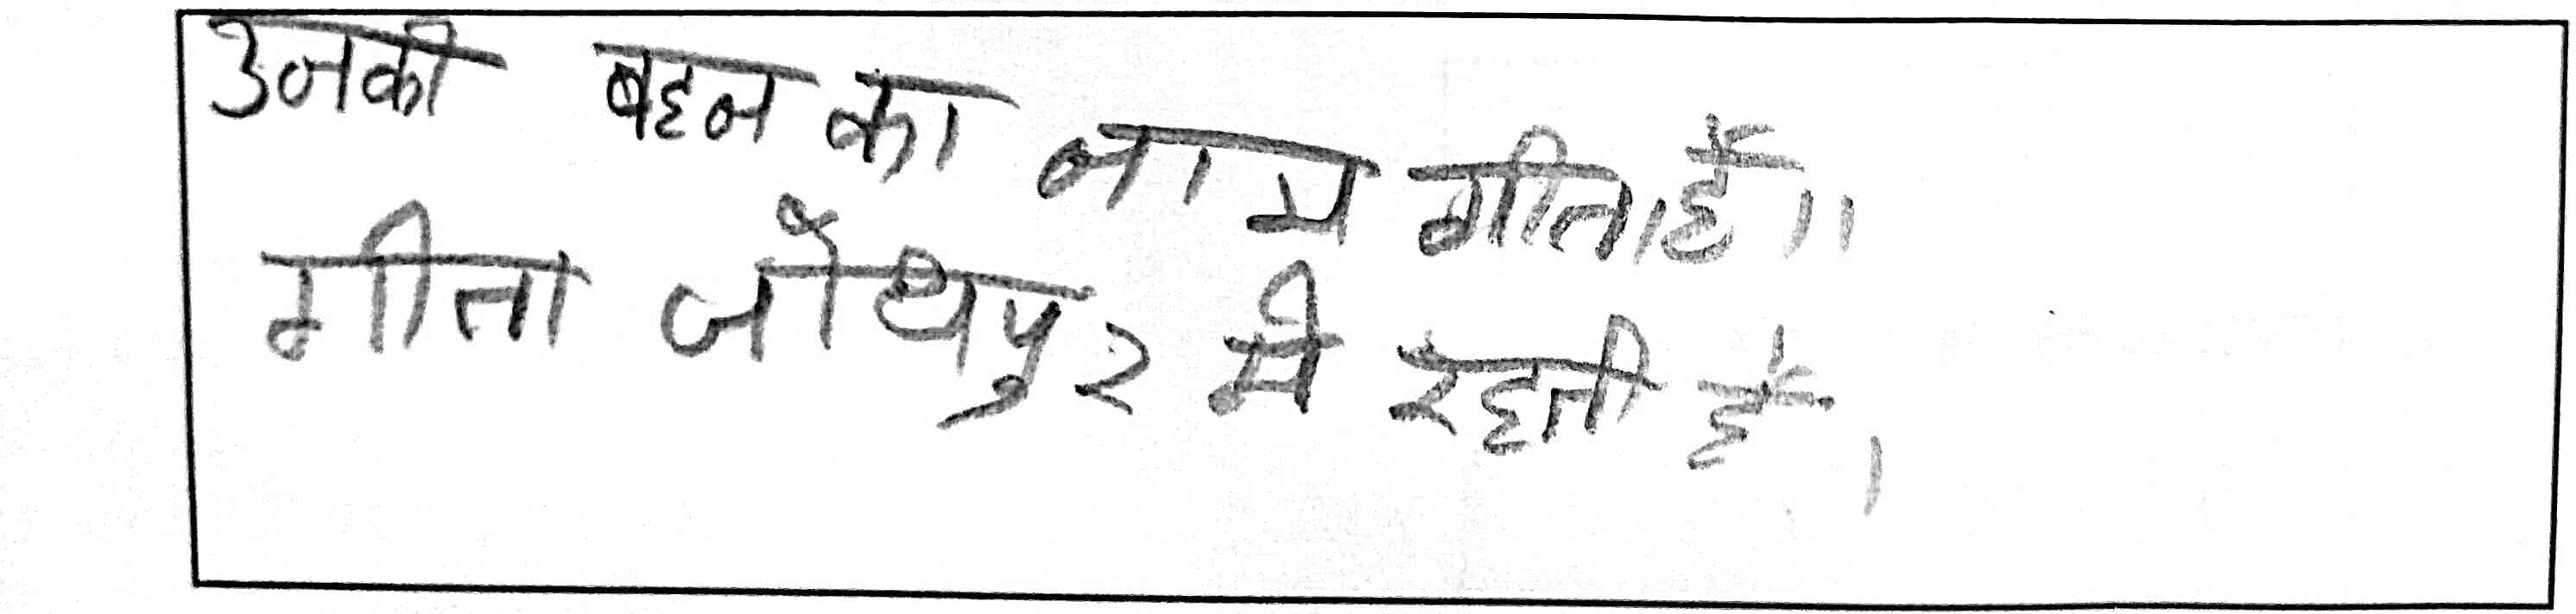 उनकी बहन का नाम गीता है॥
गीता जोधपुर मे रहती है।